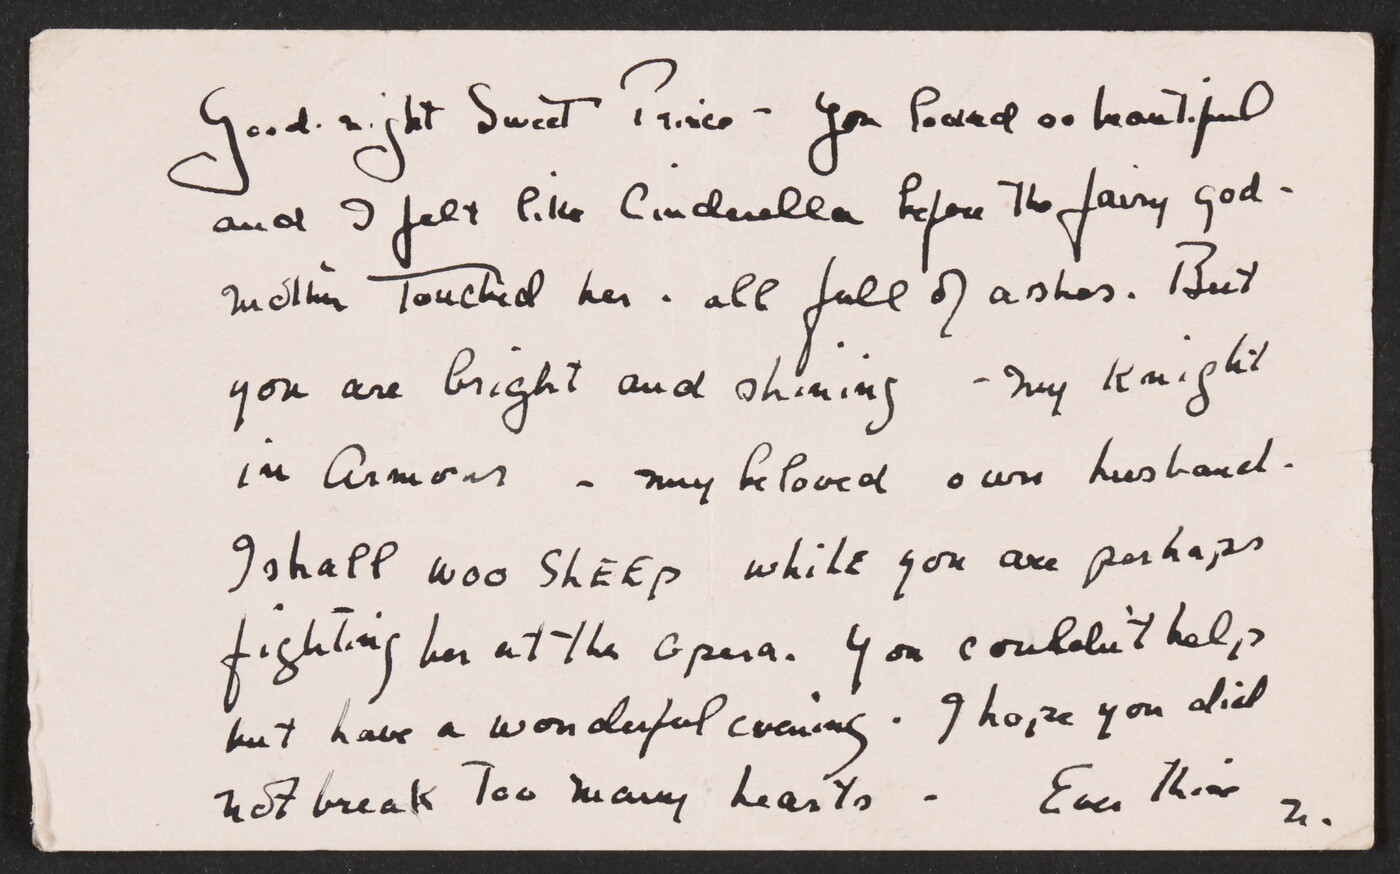 Good-night Sweet Prince - You looked so beautiful
and I felt like Cinderella before the fairy god-
mother Touched her. all full of ashes. But
you are bright and shining - my Knight
in Armour - my beloved own husband.
I shall woo ShEEp whilE you are perhaps
fighting her at the opera. You couldn't help
but have a wonderful evening. I hope you did
not break Too many hearts - Ever Thine n.